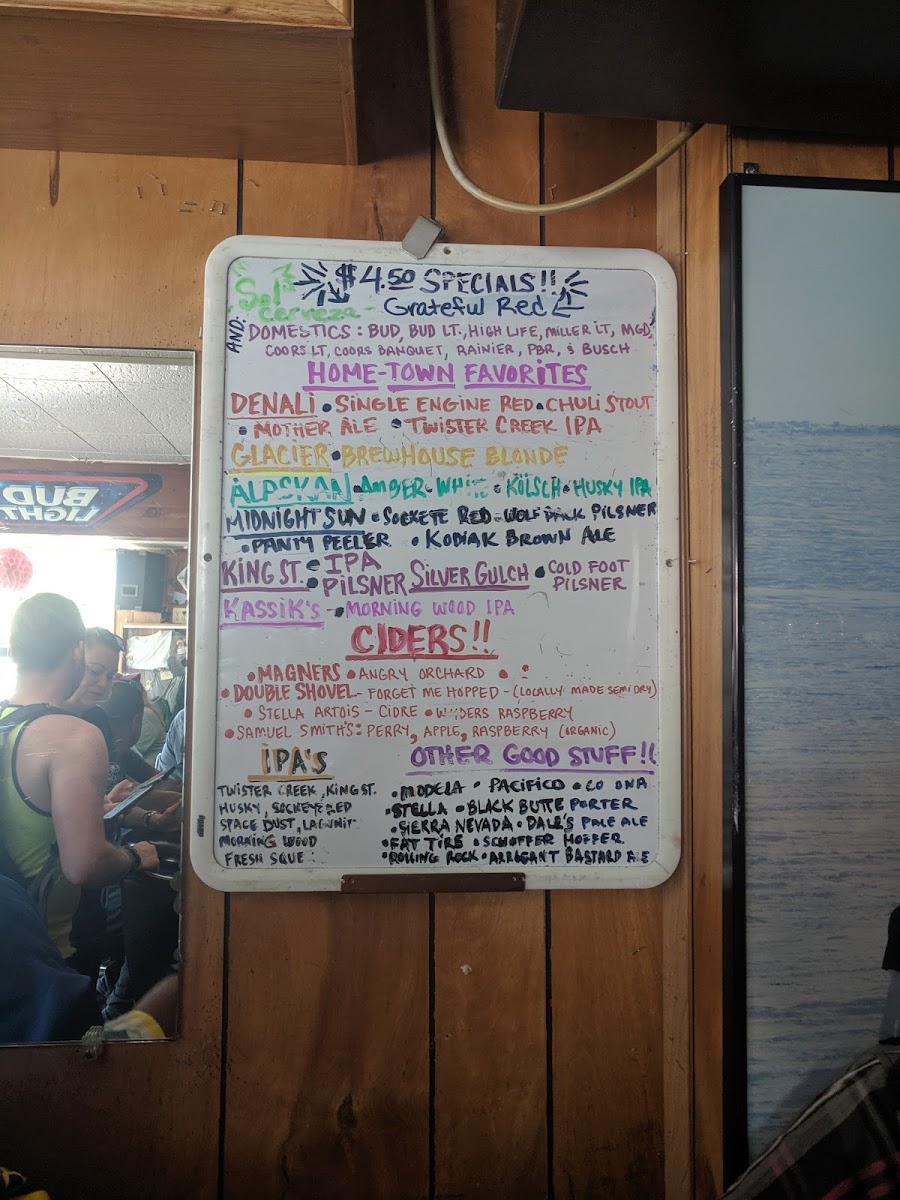 Sol
Cerveza -
$4.50 SPECIALS!!
Grateful Red
AND:
DOMESTICS: BUD, BUD LT., HIGH LIFE, MILLER LT, MGD,
COORS LT, COORS BANQUET, RAINIER, PBR, & BUSCH
HOME-TOWN FAVORITES
DENALI • SINGLE ENGINE RED • CHULI STOUT
• MOTHER ALE • TWISTER CREEK IPA
GLACIER • BREWHOUSE BLONDE
ALASKAN • AMBER • WHITE • KÖLSCH • HUSKY IPA
MIDNIGHT SUN • SOCKEYE RED • WOLF PACK PILSNER
• PANTY PEELER • KODIAK BROWN ALE
KING ST. • IPA
• PILSNER
SILVER GULCH • COLD FOOT
PILSNER
KASSIK'S - • MORNING WOOD IPA
CIDERS!!
• MAGNERS • ANGRY ORCHARD •
• DOUBLE SHOVEL - FORGET ME HOPPED - (LOCALLY MADE SEMI DRY)
• STELLA ARTOIS - CIDRE • WYDERS RASPBERRY
• SAMUEL SMITH'S: PERRY, APPLE, RASPBERRY (ORGANIC)
IPA'S
TWISTER CREEK, KING ST.
HUSKY, SOCKEYE RED
SPACE DUST, LAGUNIT
MORNING WOOD
FRESH SQUE
OTHER GOOD STUFF!!
• MODELA • PACIFICO • CO ONA
• STELLA • BLACK BUTTE PORTER
• SIERRA NEVADA • DALE'S PALE ALE
• FAT TIRE • SCHOFFER HOFFER
• ROLLING ROCK • ARROGANT BASTARD ALE
BUD
LIGHT